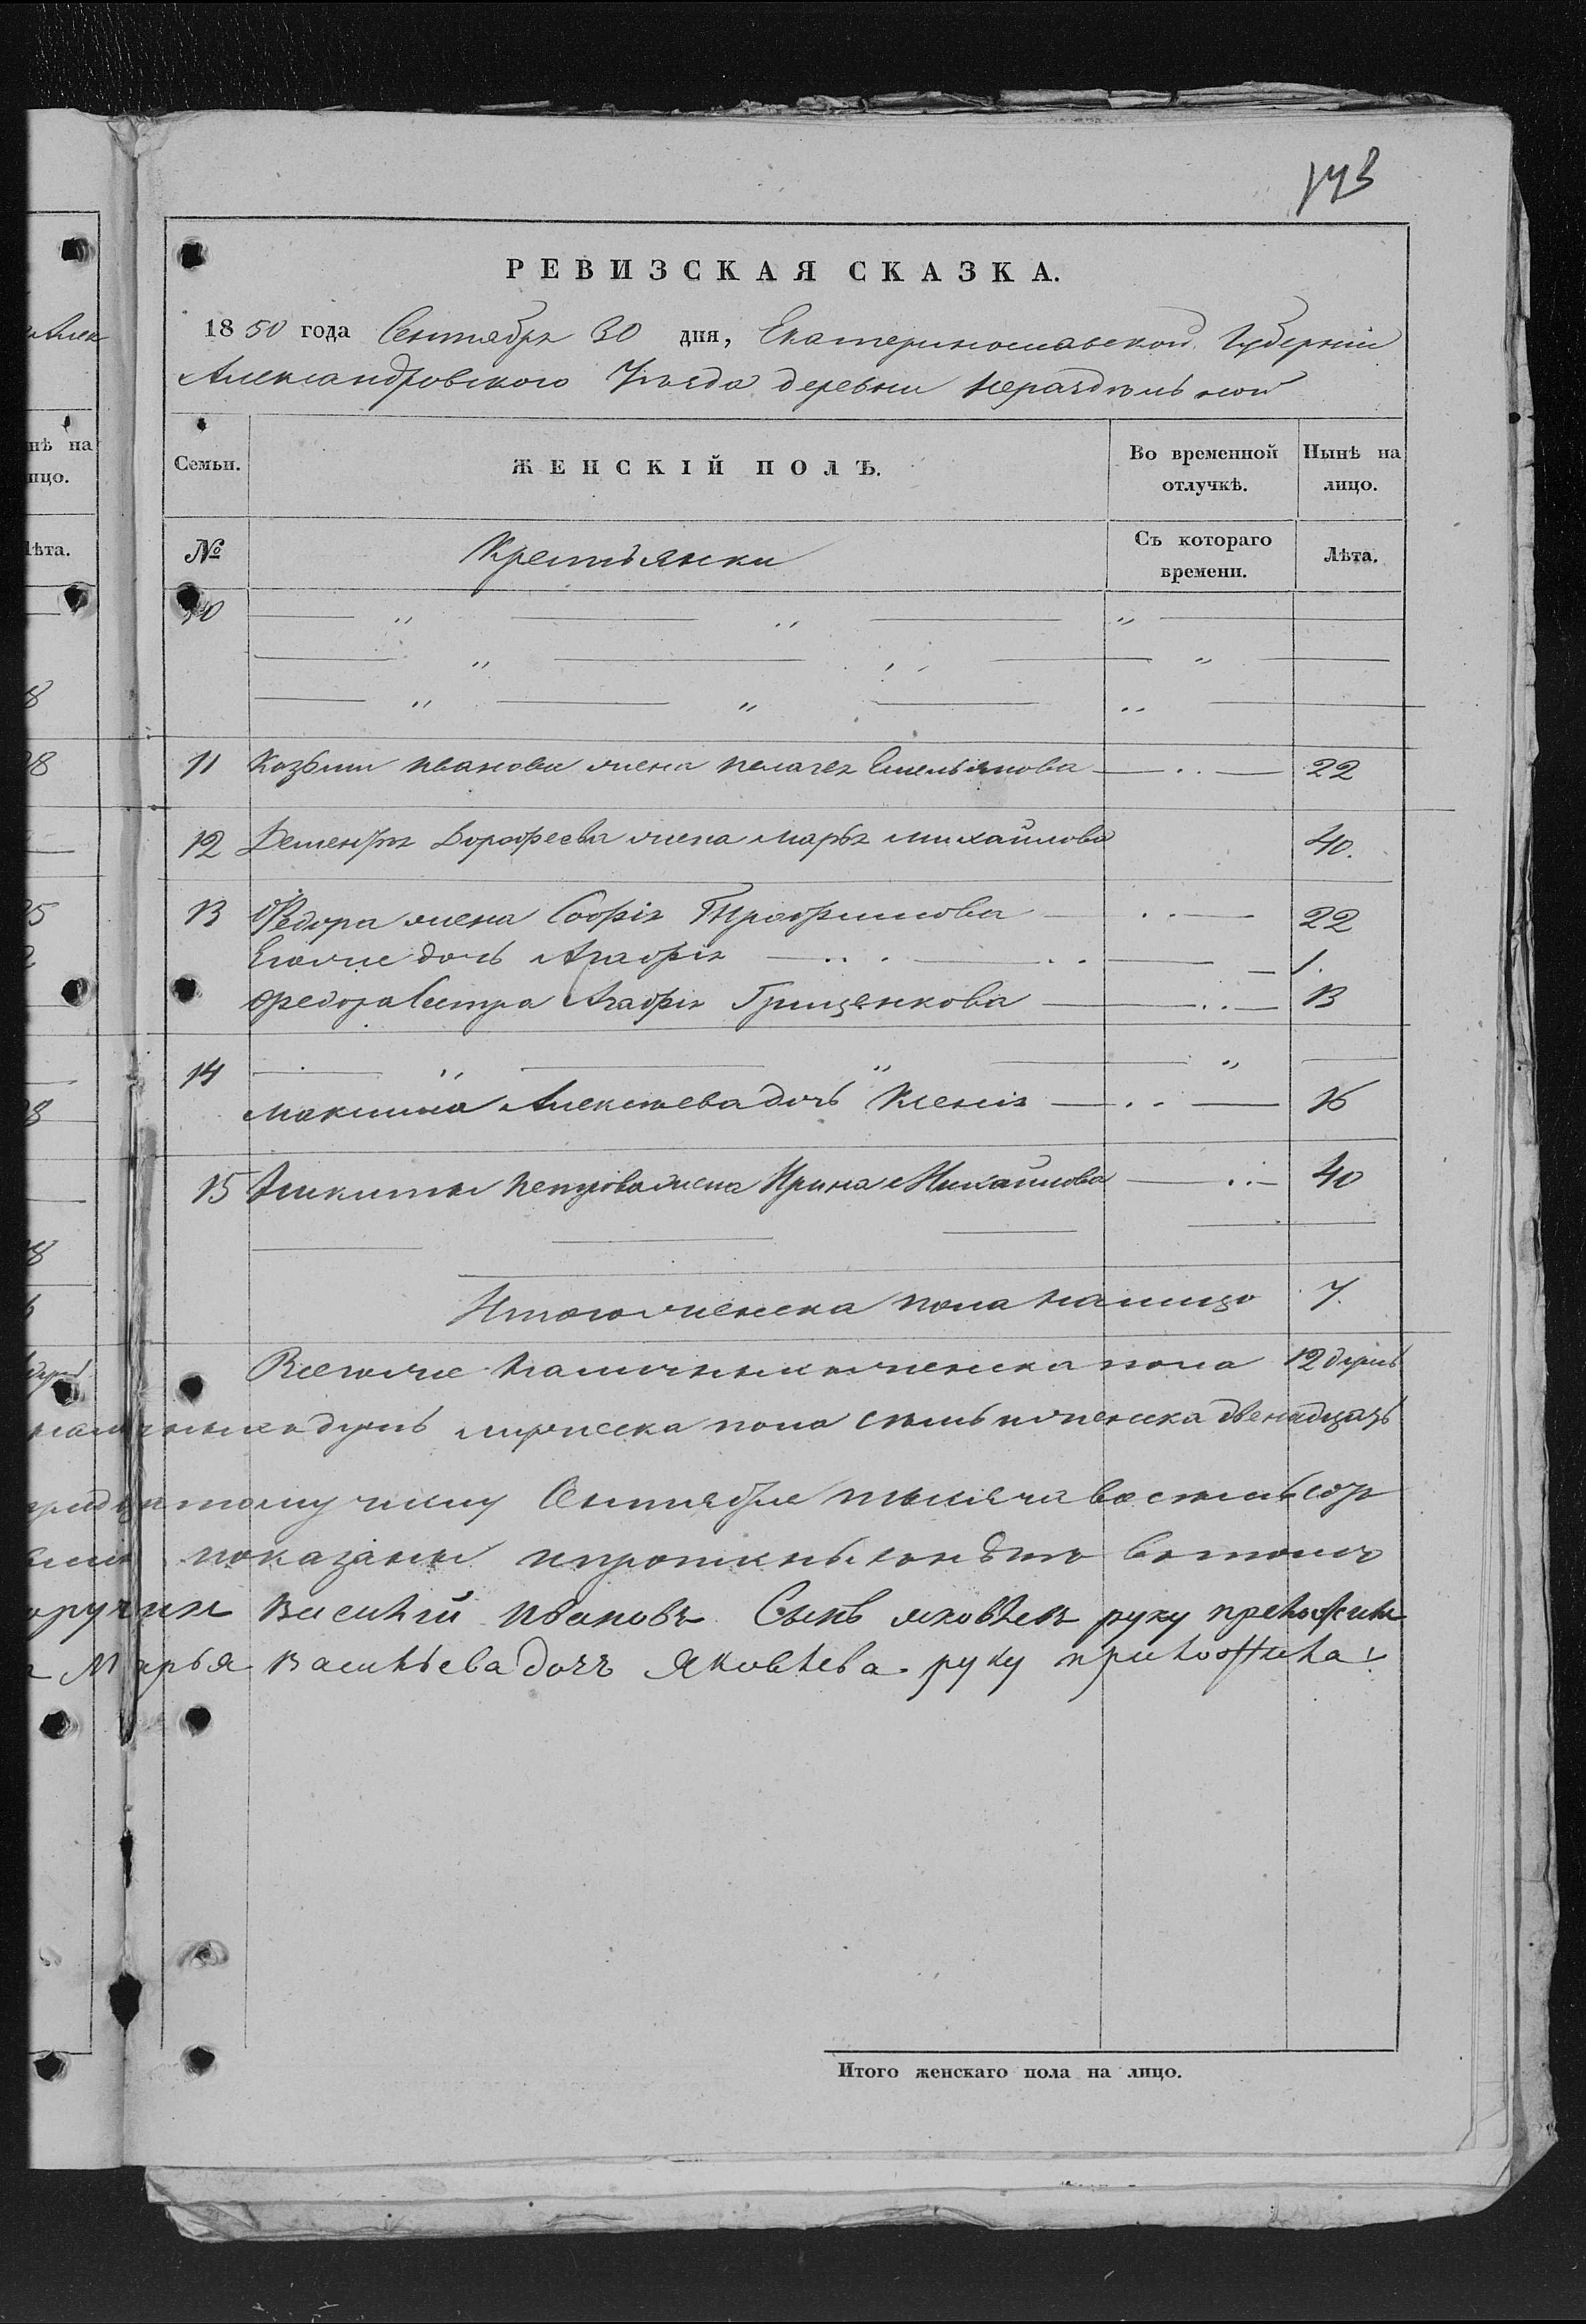 143
РЕВИЗСКАЯ СКАЗКА.
1850 года Сентября 30 дня, Екатеринославской Губерніи
Александровского Уѣзда деревни Нераздѣльной
Семьи. ЖЕНСКІЙ ПОЛЪ. Во временной отлучкѣ. Нынѣ на лицо.
№ Крестьянки Съ котораго времени. Лѣта.
10
11 Козьмы Иванова жена Пелагея Емельянова 22
12 Дементія Дорофеева жена Марья Михайлова 40.
13 Федора жена Софія Трофимова 22
Егожже дочь Агафія 1.
Федора Сестра Агафія Грищенкова 13
14
Максима Алексѣева дочь Ксенія 16
15 Никиты Петрова жена Ирина Михайлова 40
Итого женска пола налицо 7.
Всегоже наличныхъ женска пола 12 душъ
наличныхъ душъ мужеска пола семь и женска двенадцать
тому числу Сентября тысяча восемьсотъ
показаны
Василій Ивановъ Сынъ Яковлев руку преложил
Марья Васильева дочь Яковлева руку приложила
Итого женскаго пола на лицо.
Алек
нѣ на
лицо.
Лѣта.